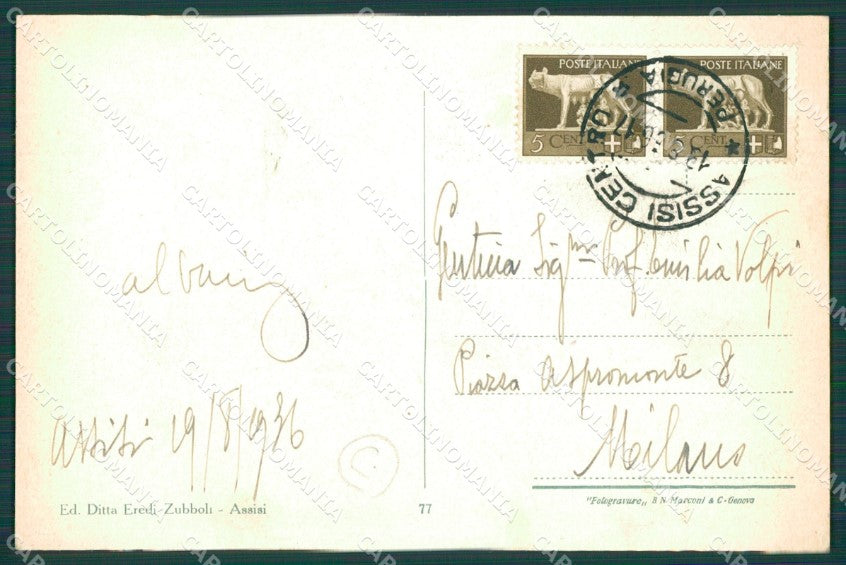 POSTE ITALIANE POSTE ITALIANE
5 CENT
ASSISI CENTRO
PERUGIA
Assisi 19/8/1936
Ed. Ditta Eredi Zubboli - Assisi
77
Gentma Sigma Prof. Emilia Volpi
Piazza Aspromonte 8
Milano
"Fotogravure„ B N. Marconi & C - Genova
C
CARTOLINOMANIA